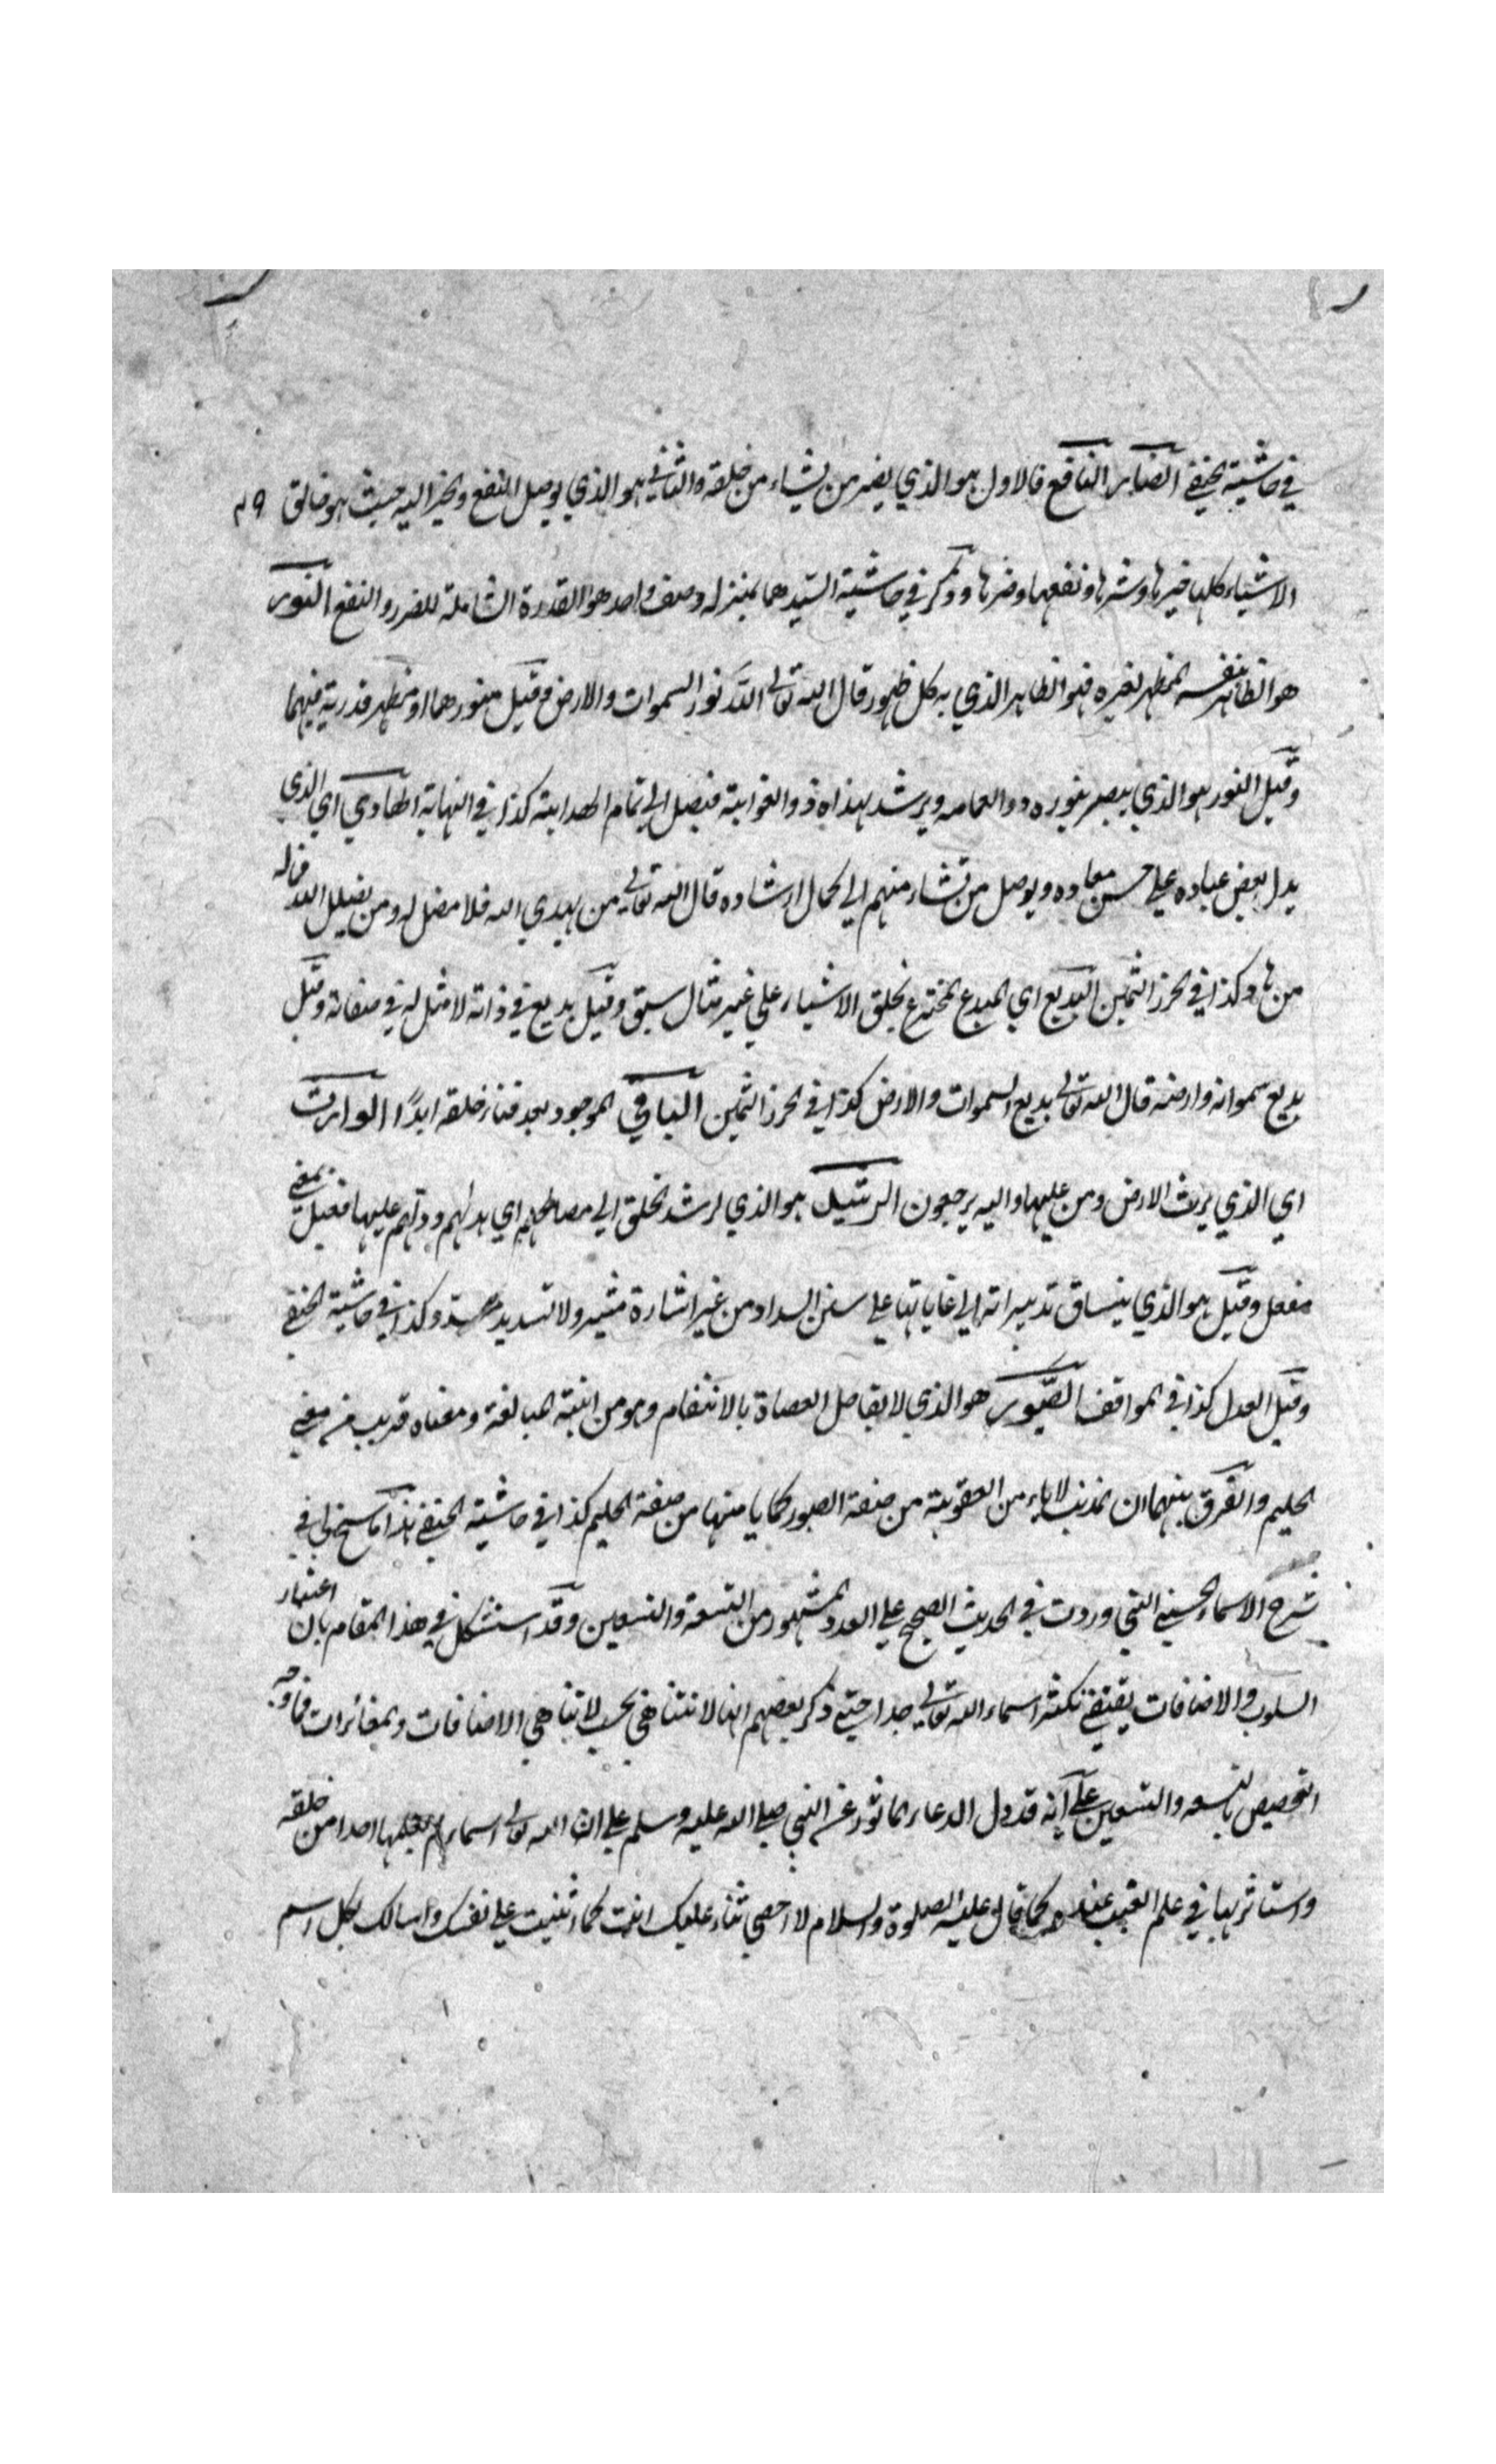 في حاشية الحنفي الضار النافع فالاول هو الذي يضر من يشاء من خلقه والثاني هو الذي يوصل النفع والخير اليه حيث هو خالق ٢٩
الاشياء كلها خيرها وشرها ونفعها وضرها وذكر في حاشية السيد هما بمنزلة وصف واحد هو القدرة الشاملة للضرر والنفع النور
هو الظاهر بنفسه المظهر لغيره فهو الظاهر الذي به كل ظهور قال الله تعالى الله نور السموات والارض وقيل منورهما او مظهر قدرته فيهما
وقيل النور هو الذي يبصر بنوره ذو العماسه ويرشد بهداه ذو الغواية فيصل الي تمام الهداية كذا في النهاية الهادي اي الذي
يدل بعض عباده علي حسن معاده ويوصل من تشاء منهم الي كمال ارشاده قال الله تعالى من يهدي الله فلا مضل له ومن يضلل الله فما له
من هاد كذا في الحرز الثمين البديع اي المبدع المخترع لخلق الاشياء علي غير مثال سبق وقيل بديع في ذاته لا مثل له في صفاته وقيل
بديع سمواته وارضه قال الله تعالى بديع السموات والارض كذا في الحرز الثمين الباقي الموجود بعد فناء خلقه ابدًا الوارث
اي الذي يرث الارض ومن عليها واليه يرجعون الرشيد هو الذي ارشد الخلق الي مصالحهم اي هداهم ودلهم عليها فعيل بمعني
مفعل وقيل هو الذي ينساق تدبيراته الي غاياتها علي سنن السداد من غير اشارة مشير ولا تسديد مسدد كذا في حاشية الحنفي
وقيل العدل كذا في المواقف الصبور هو الذي لا يعاجل العصاة بالانتقام وهو من ابنية المبالغة ومعناه قريب من معني
الحليم والفرق بينهما ان المذنب لا يامن العقوبة من صفة الصبور كما يامنها من صفة الحليم كذا في حاشية الحنفي هذا ما سنح لي في
شرح الاسماء الحسني التي وردت في الحديث الصحيح علي العدد المشهور من التسعة والتسعين وقد استشكل في هذا المقام بان اعتبار
السلوب والاضافات يقتضي تكثر اسماء الله تعالى جدا حتي ذكر بعضهم انها لا تتناهي بحسب لا تناهي الاضافات والمغائرات فما وجه
التخصيص بالتسعة والتسعين علي انه قد دل الدعاء الماثور عن النبي صلي الله عليه وسلم علي ان الله تعالى اسماء لم يعلمها احدا من خلقه
واستاثر بها في علم الغيب عنده كما قال عليه الصلوة والسلام لا احصي ثناء عليك انت كما اثنيت علي نفسك واسالك بكل اسم